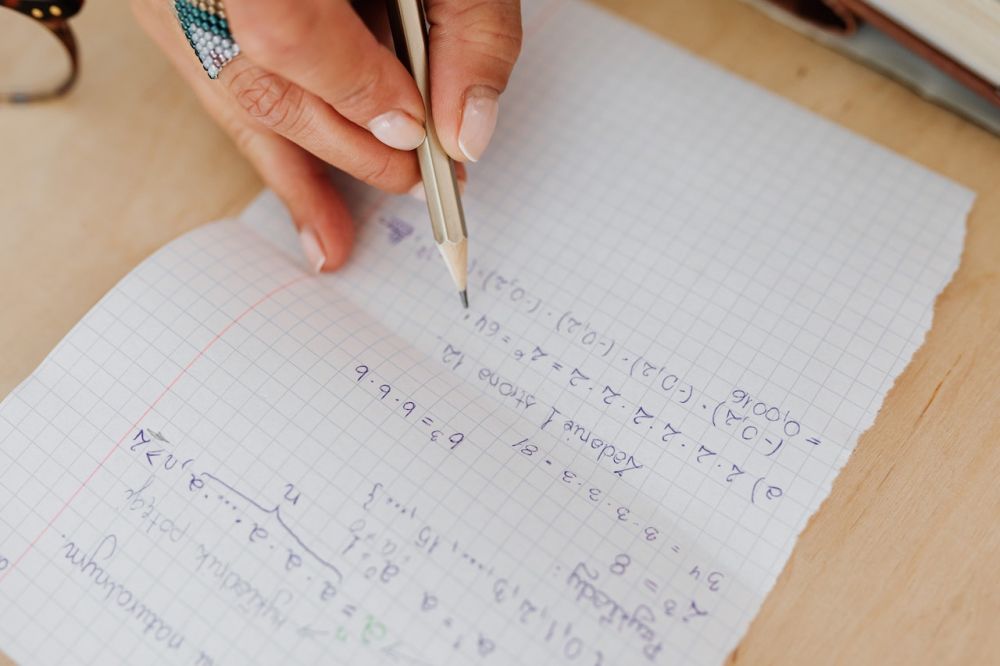 naturalnym.
wykładnik potęgi
aⁿ = a · a · a · ... · a, n ≥ 2
n
a¹ = a a⁰ = 1
0, 1, 2, 3, ..., 15, ... }
Przykłady:
2³ = 8
3⁴ = 3·3·3·3 = 81 b³ = b·b·b
Zadanie 1 strona 12.
a) 2·2·2·2·2·2 = 2⁶ = 64
(-0,2)·(-0,2)·(-0,2)·(-0,2)
= 0,0016